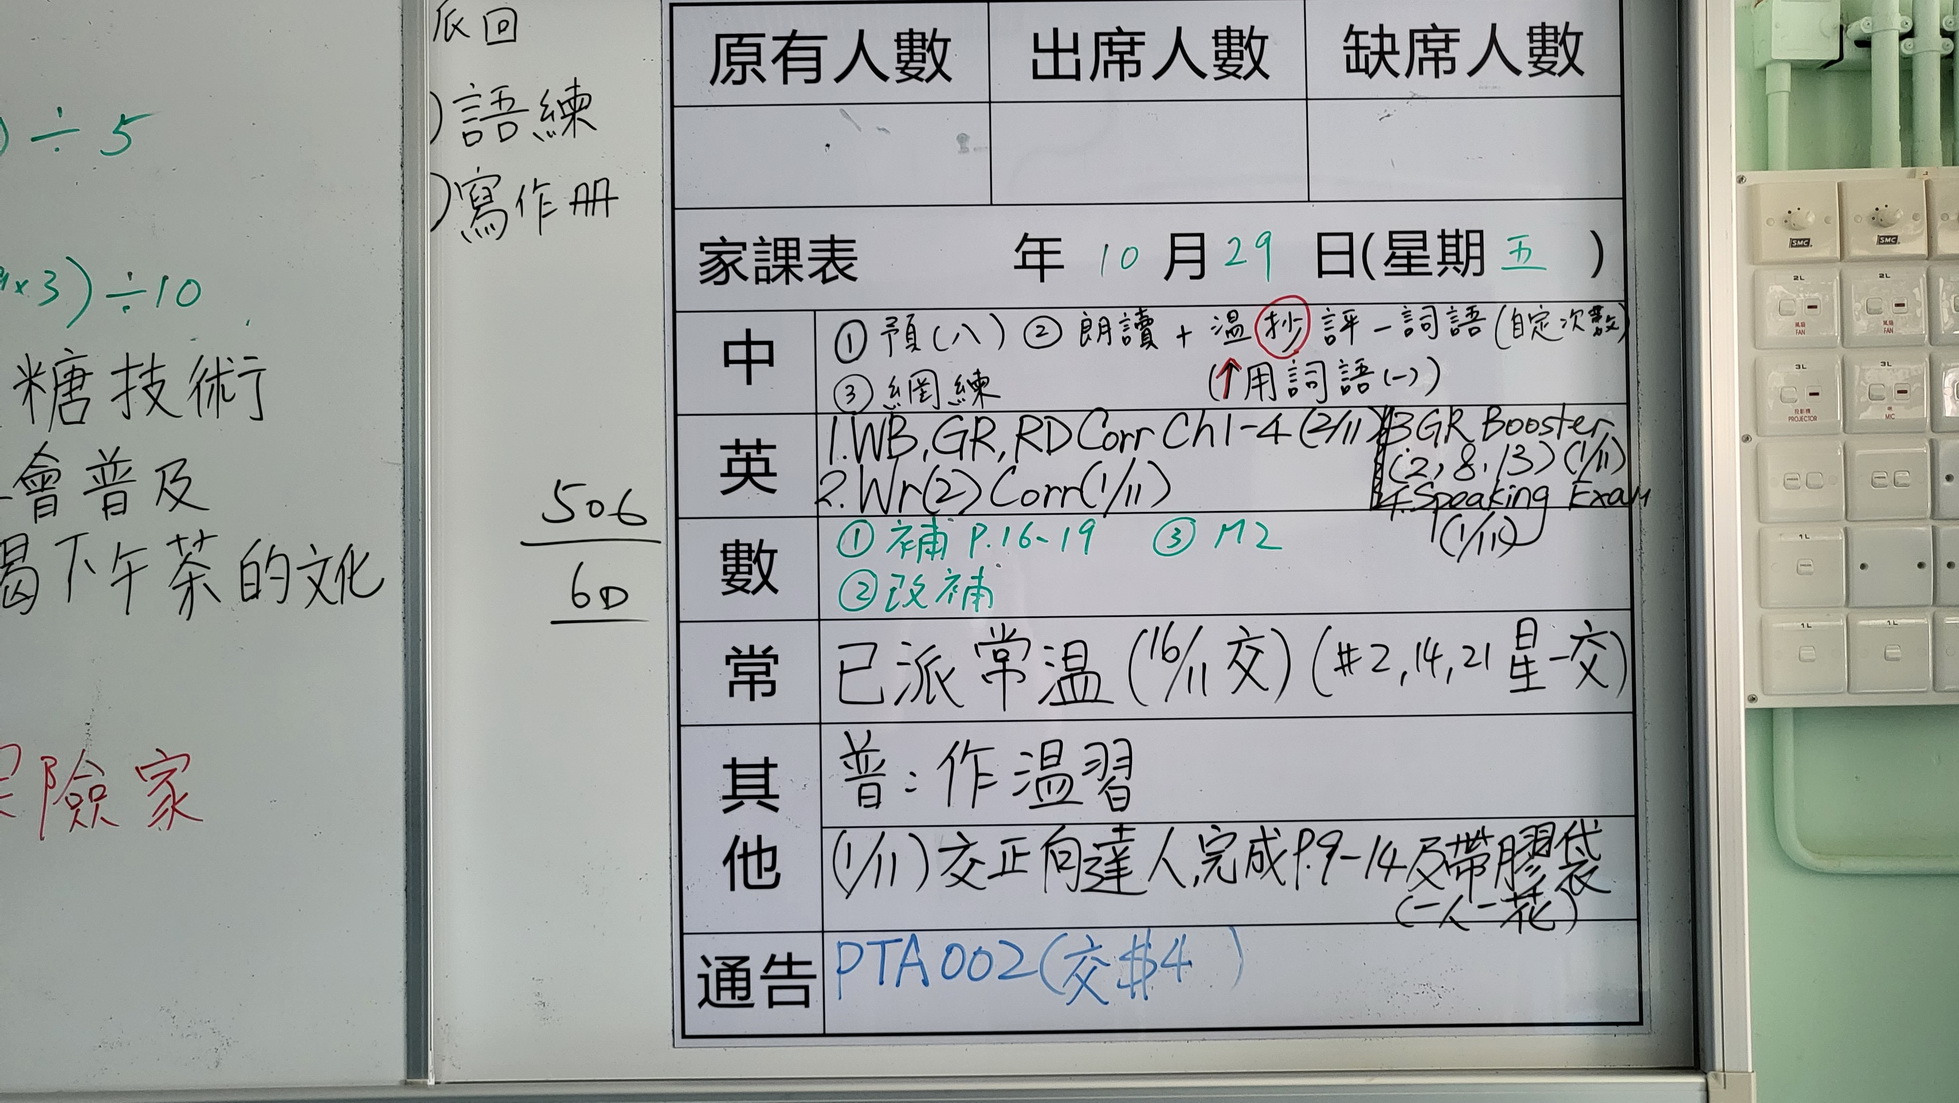 ÷5
×3)÷10
糖技術
會普及
喝下午茶的文化
險家
派回
)語練
)寫作册
506
6D
原有人數 出席人數 缺席人數
家課表 年 10 月 29 日(星期 五 )
中 ①預(八) ②朗讀+溫抄評一詞語(自定次數)
③網練 (↑用詞語(一))
英 1.WB,GR,RD Corr Ch1-4 (2/11)
2.Wr(2) Corr(1/11)
3 GR Booster
(2,8,13) (1/11)
4.Speaking Exam
(1/11)
數 ①補 P.16-19 ③M2
②改補
常 已派常溫(16/11交)(#2,14,21星一交)
其他 普:作溫習
(1/11)交正向達人,完成P.9-14及帶膠袋
(一人一花)
通告 PTA002(交$4 )
SMC SMC
2L 2L
FAN FAN
3L 3L
PROJECTOR MIC
1L 1L
1L 1L